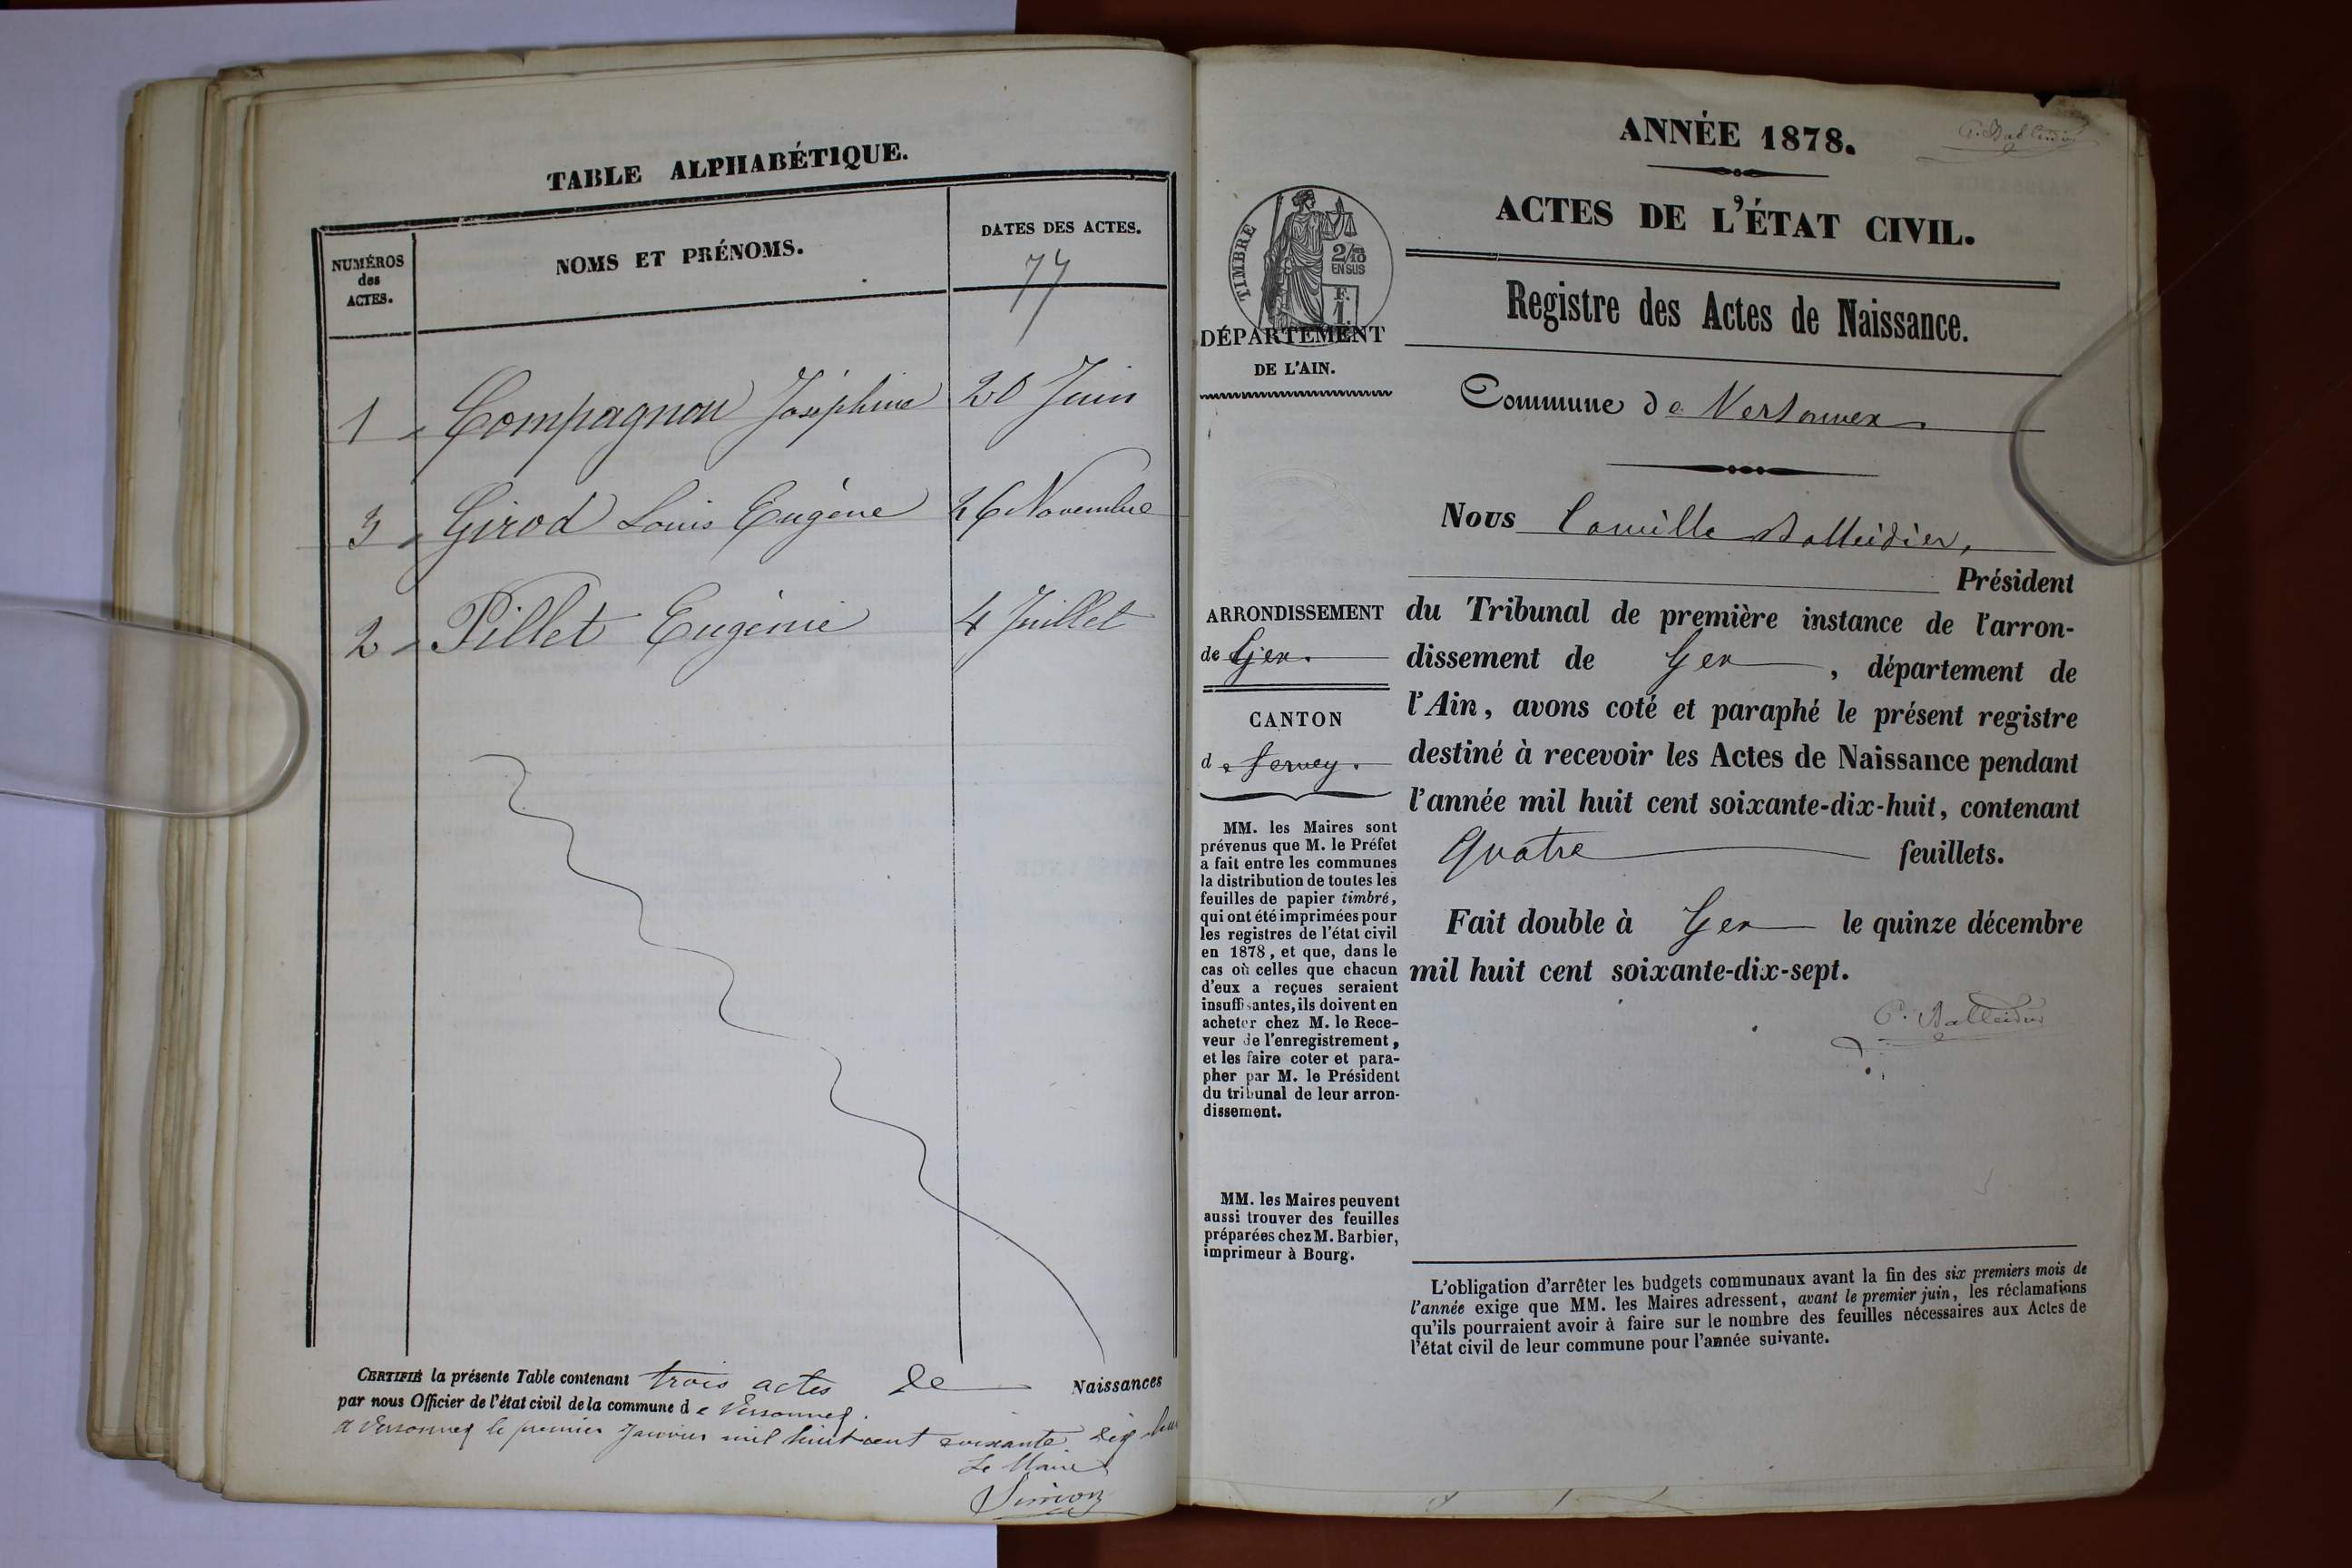 TABLE ALPHABÉTIQUE.
NUMÉROS
des
ACTES.
NOMS ET PRÉNOMS.
DATES DES ACTES.
77
1 Compagnon Joséphine 20 Juin
3 Girod Louis Eugène 26 Novembre
2 Pillet Eugénie 4 Juillet
CERTIFIÉ la présente Table contenant trois actes de Naissances
par nous Officier de l'état civil de la commune de Versonnex.
A Versonnex le premier Janvier mil huit cent soixante dix huit
Le Maire
ANNÉE 1878.
ACTES DE L'ÉTAT CIVIL.
Registre des Actes de Naissance.
TIMBRE
2/10
EN SUS
F.
1.
DÉPARTEMENT
DE L'AIN.
Commune de Versonnex
Nous Camille Balleidier,
Président
du Tribunal de première instance de l'arron-
dissement de Gex, département de
l'Ain, avons coté et paraphé le présent registre
destiné à recevoir les Actes de Naissance pendant
l'année mil huit cent soixante-dix-huit, contenant
Quatre feuillets.
Fait double à Gex le quinze décembre
mil huit cent soixante-dix-sept.
C. Balleidier
ARRONDISSEMENT
de Gex.
CANTON
de Ferney.
MM. les Maires sont
prévenus que M. le Préfet
a fait entre les communes
la distribution de toutes les
feuilles de papier timbré,
qui ont été imprimées pour
les registres de l'état civil
en 1878, et que, dans le
cas où celles que chacun
d'eux a reçues seraient
insuffisantes, ils doivent en
acheter chez M. le Rece-
veur de l'enregistrement,
et les faire coter et para-
pher par M. le Président
du tribunal de leur arron-
dissement.
MM. les Maires peuvent
aussi trouver des feuilles
préparées chez M. Barbier,
imprimeur à Bourg.
L'obligation d'arrêter les budgets communaux avant la fin des six premiers mois de
l'année exige que MM. les Maires adressent, avant le premier juin, les réclamations
qu'ils pourraient avoir à faire sur le nombre des feuilles nécessaires aux Actes de
l'état civil de leur commune pour l'année suivante.